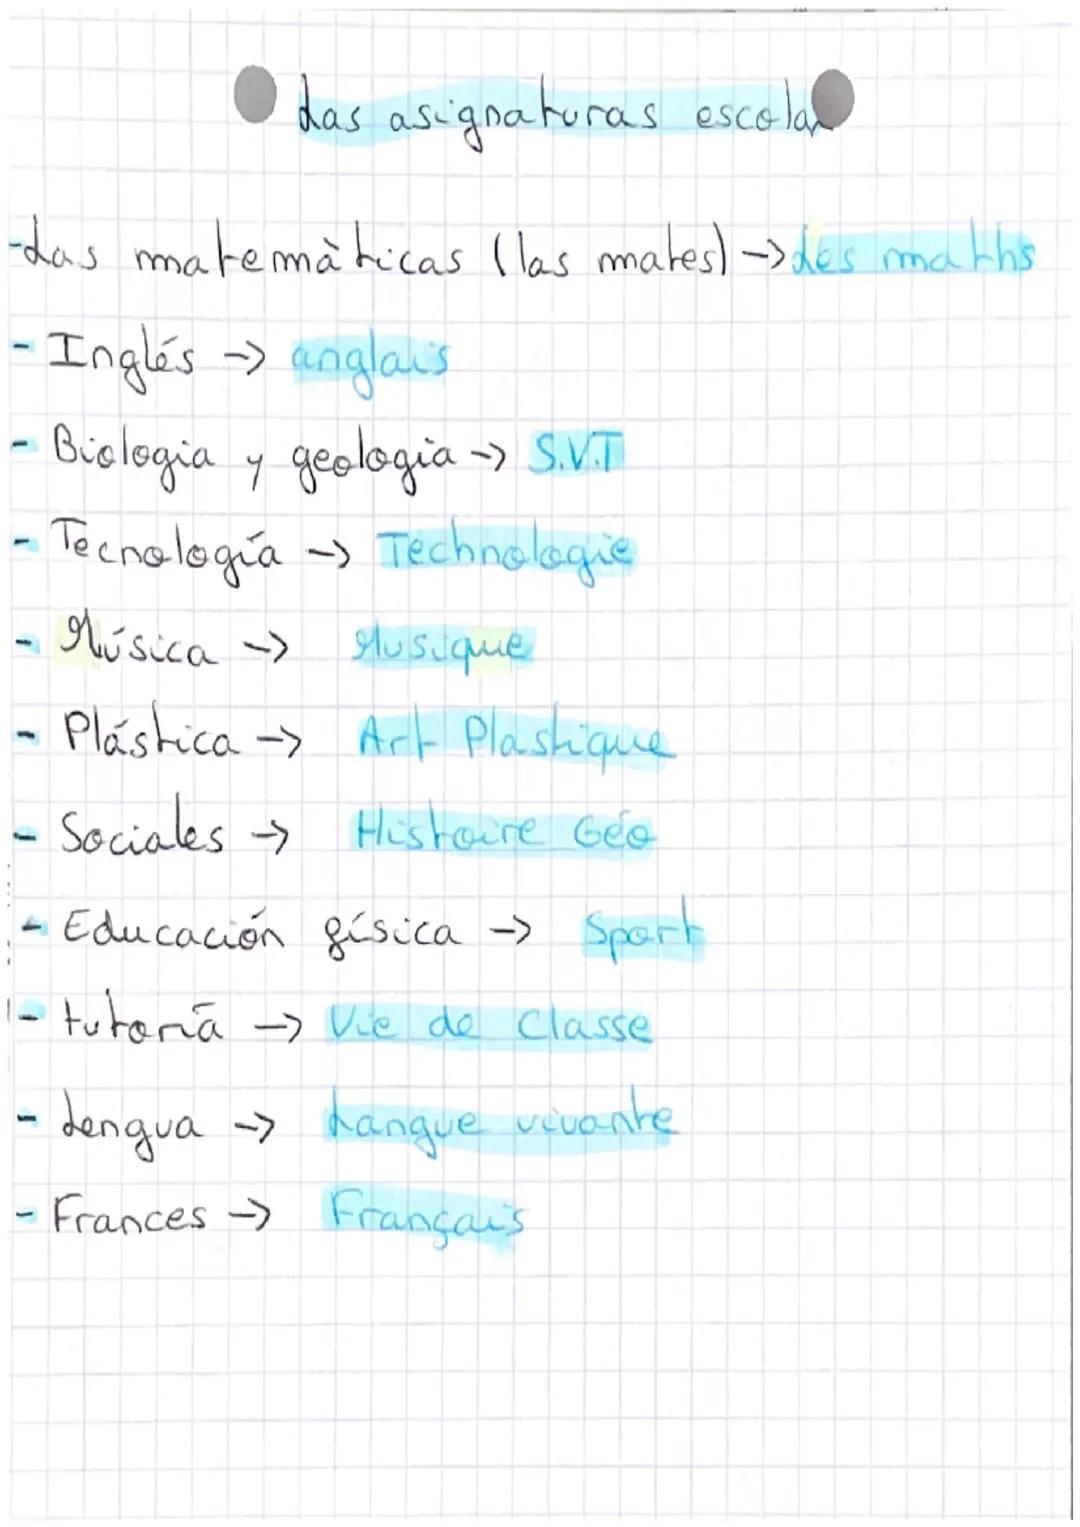 Las asignaturas escolar
-Las matemàticas (las mates) -> Les maths
- Inglés -> anglais
- Biologia y geologia -> S.V.T
- Tecnología -> Technologie
- Música -> Musique
- Plástica -> Art Plastique
- Sociales -> Histoire Géo
- Educación física -> Sport
- tutoría -> Vie de Classe
- Lengua -> Langue vivante
- Frances -> Français